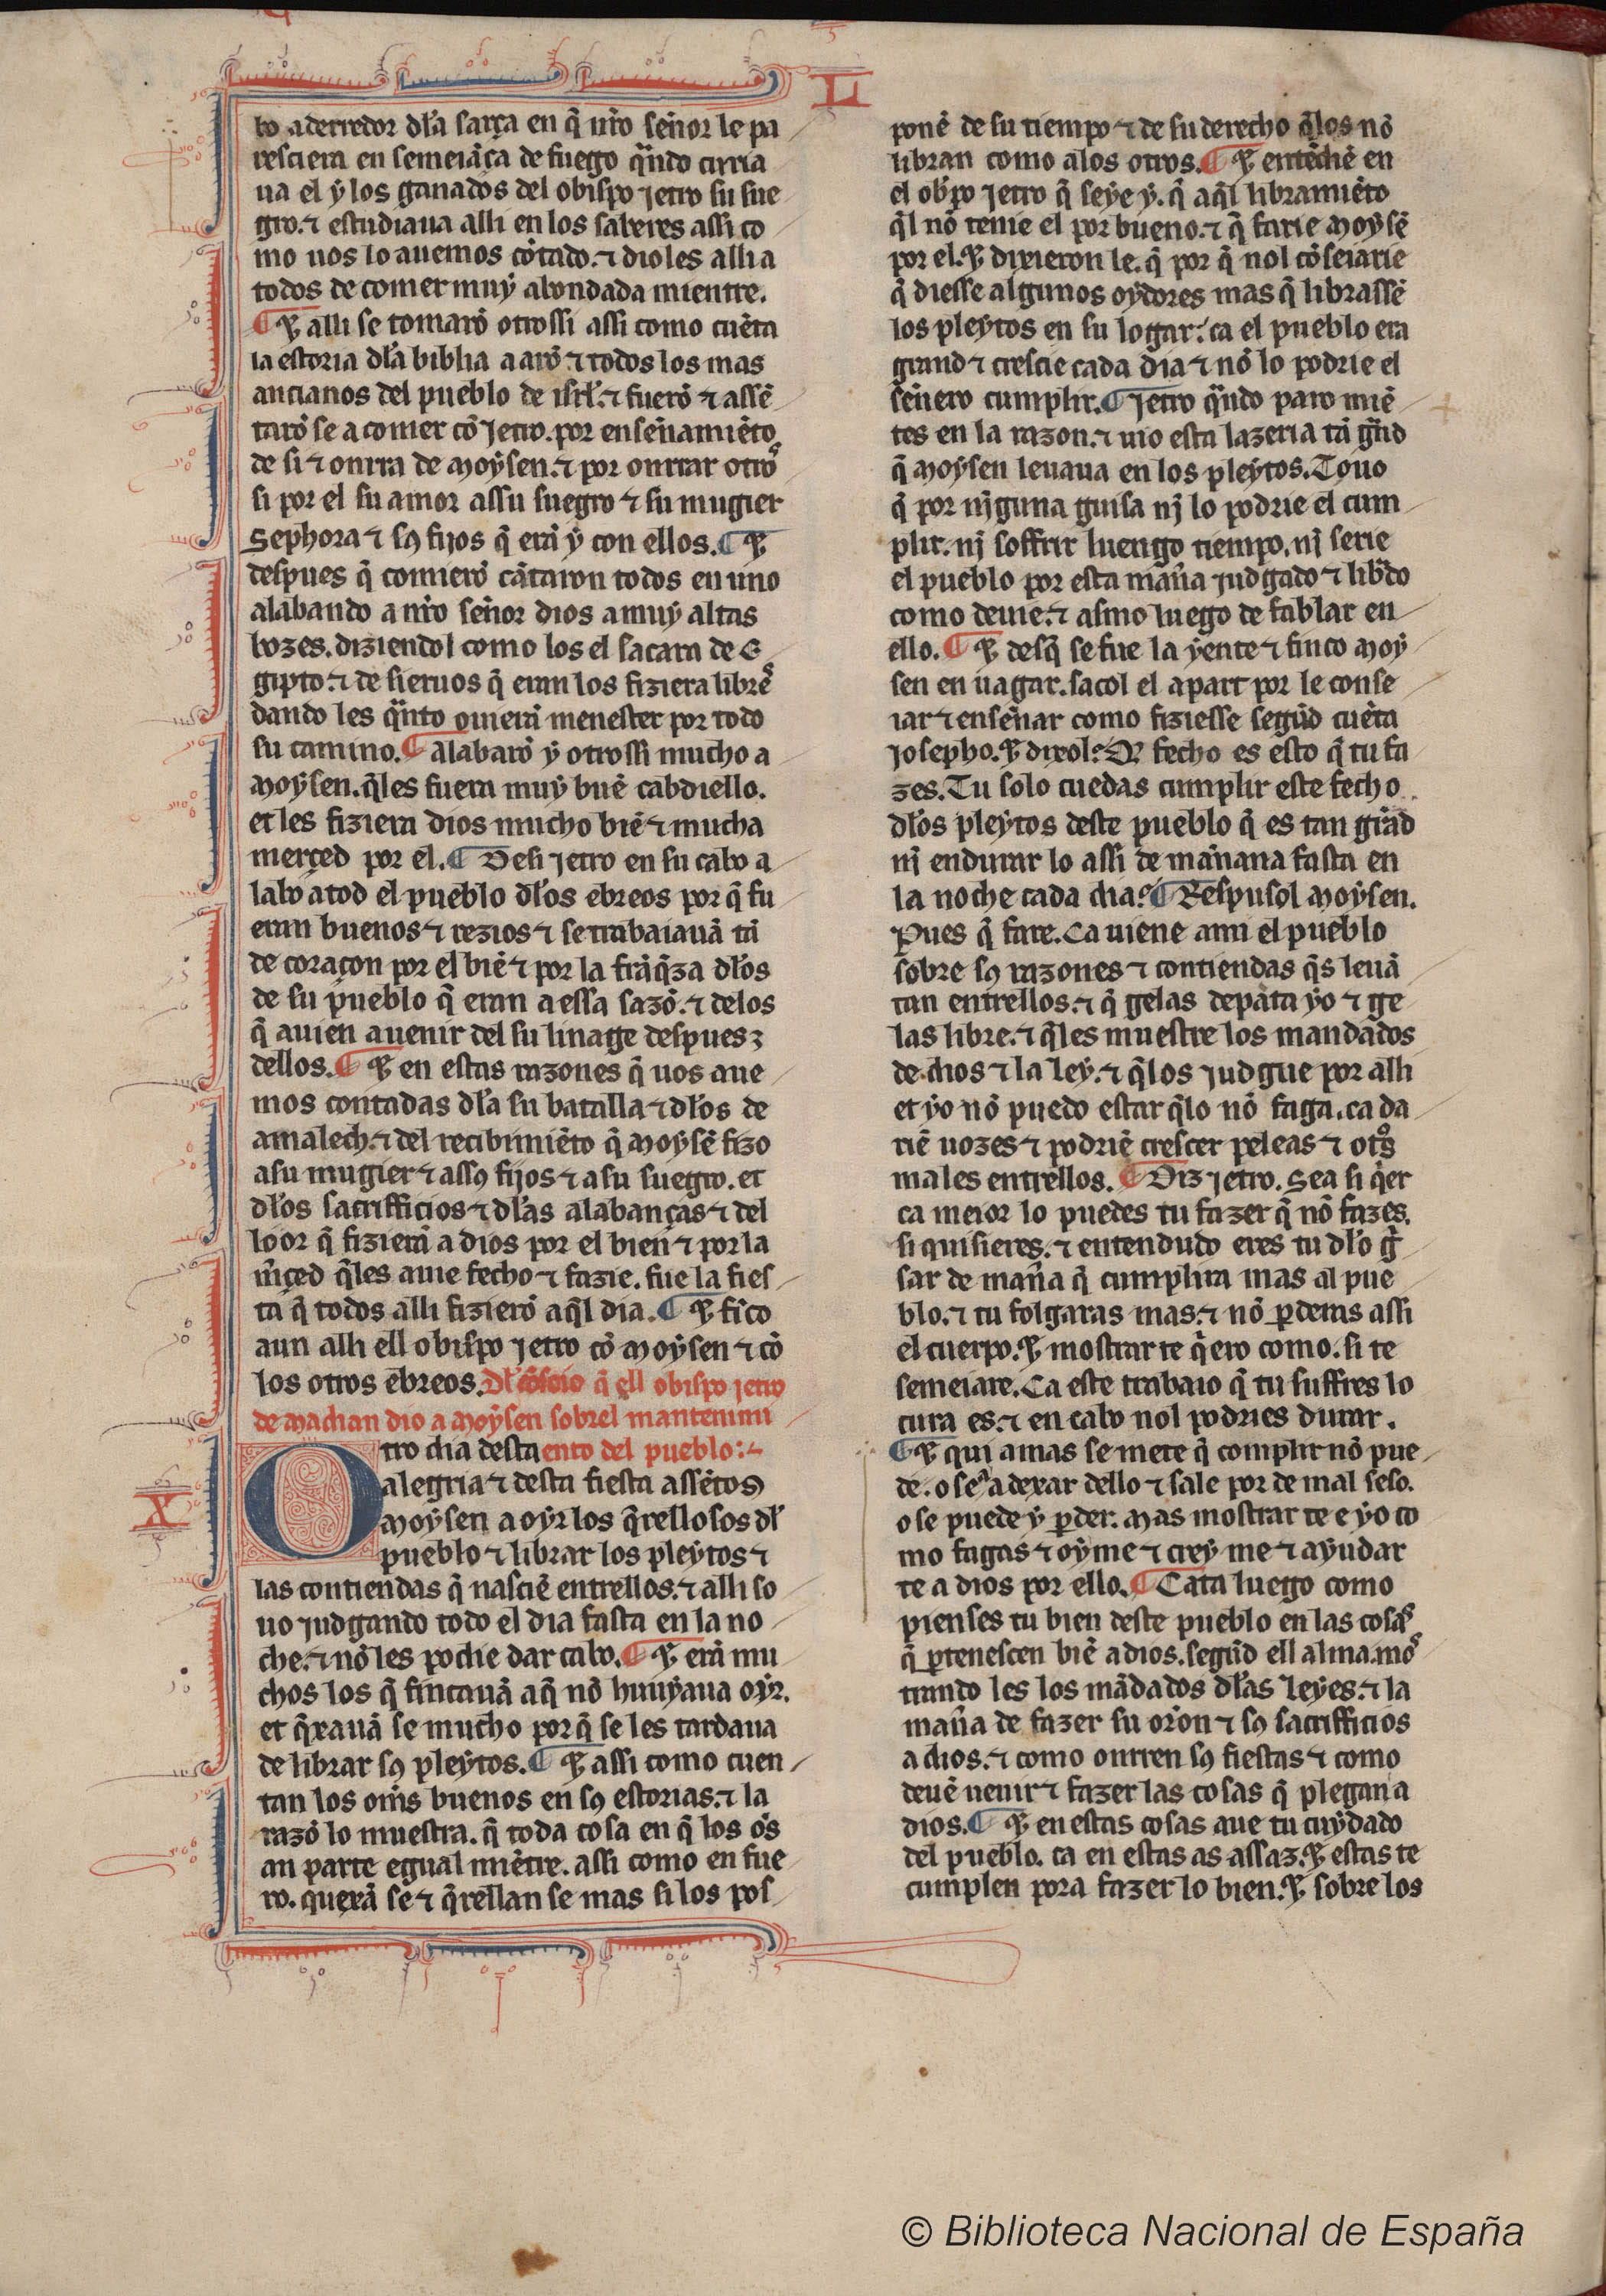 L
bo aderredor dła sarça en q̃ nr̃o señor le pa
resciera en semeiãça de fuego qͣndo curia
ua el ẏ los ganados del obispo jetro su sue
gro.⁊ estudiaua alli en los saberes assi co
mo uos lo auemos cõtado.⁊ dioles alli a
todos de comer muẏ abondada mientre.
¶ E alli se tomarõ otrossi assi como cuẽta
la estoria dła biblia aarõ ⁊ todos los mas
ancianos del pueblo de isrł.⁊ fuerõ ⁊ assẽ
tarõ se a comer cõ Jetro. por enseñamiẽto
de si ⁊ onrra de Moẏsen.⁊ por onrrar otro
si por el su amor assu suegro ⁊ su mugier
Sephora ⁊ sꝯ fijos q̃ erã ẏ con ellos. ¶ E
despues q̃ comierõ cãtaron todos en uno
alabando a nr̃o señor dios a muẏ altas
bozes. diziendol como los el sacara de E
gipto.⁊ de sieruos q̃ eran los fiziera librẽˢ
dando les qͣnto ouierã menester por todo
su camino. ¶ alabarõ ẏ otrossi mucho a
Moẏsen. q̃les fuera muẏ buẽ cabdiello.
et les fiziera dios mucho biẽ ⁊ mucha
merçed por el. ¶ Desi jetro en su cabo a
labo a tod el pueblo dłos ebreos por q̃ fu
eran buenos ⁊ rezios ⁊ se trabaiauã tã
de coraçon por el biẽ ⁊ por la frãq̃za dłos
de su pueblo q̃ eran a essa sazõ.⁊ delos
q̃ auien auenir del su linage despues
dellos. ¶ E en estas razones q̃ uos aue
mos contadas dła su batalla ⁊ dłos de
amalech.⁊ del recibimiẽto q̃ Moẏsẽ fizo
a su mugier ⁊ assꝯ fijos ⁊ a su suegro. et
dłos sacrifficios ⁊ dłas alabanças ⁊ del
loor q̃ fizierã a dios por el bien ⁊ por la
m̃çed q̃les auie fecho ⁊ fazie. fue la fies
ta q̃ todos alli fizierõ aq̃l dia. ¶ E fĩco
aun alli ell obispo jetro cõ Moẏsen ⁊ cõ
los otros ebreos. Dł cõseio q̃ ell obispo jetro
de Madian dio a Moẏsen sobrel mantenimi
ento del pueblo:
X
Otro dia desta
alegria ⁊ desta fiesta assẽtos
Moẏsen a oẏr los q̃rellosos dł
pueblo ⁊ librar los pleẏtos ⁊
las contiendas q̃ nasciẽ entrellos.⁊ alli so
uo judgando todo el dia fasta en la no
che.⁊ nõ les podie dar cabo. ¶ E erã mu
chos los q̃ fincauã aq̃ nõ huuẏaua oẏr.
et q̃xauã se mucho porq̃ se les tardaua
de librar sꝯ pleẏtos. ¶ E assi como cuen
tan los om̃s buenos en sꝯ estorias.⁊ la
razõ lo muestra. q̃ toda cosa en q̃ los õs
an parte egual miẽtre. assi como en fue
ro. quexã se ⁊ q̃rellan se mas si los pos
ponẽ de su tiempo ⁊ de su derecho q̃los nõ
libran como alos otros. ¶ E entẽdiẽ en
el ob̃po jetro q̃ seẏe ẏ. q̃ aq̃l libramiẽto
q̃l nõ tenie el por bueno.⁊ q̃ farie Moẏsẽ
por el. E dixieron le. q̃ por q̃ nol cõseiarie
q̃ diesse algunos oẏdores mas q̃ librassẽ
los pleẏtos en su logar. ca el pueblo era
grand ⁊ crescie cada dia ⁊ nõ lo podrie el
señero cumplir. ¶ Jetro qͣndo paro miẽ
tes en la razon.⁊ uio esta lazeria tã gͣnd
q̃ Moẏsen leuaua en los pleẏtos. Touo
q̃ por nj̃guna guisa nj̃ lo podrie el cum
plir. nj̃ soffrir luengo tiempo. nj̃ serie
el pueblo por esta mañа judgado ⁊ libͣdo
como deuie.⁊ asmo luego de fablar en
ello. ¶ E desq̃ se fue la ẏente ⁊ finco Moẏ
sen en uagar. sacol el a part por le conse
iar ⁊ enseñar como fiziesse segũd cuẽta
Josepho. E dixol. Q̃ fecho es esto q̃ tu fa
zes. Tu solo cuedas cumplir este fecho
dłos pleẏtos deste pueblo q̃ es tan grãd
nj̃ endurar lo assi de mañana fasta en
la noche cada dia. ¶ Respusol Moẏsen.
Pues q̃ fare. Ca uiene a mi el pueblo
sobre sꝯ razones ⁊ contiendas q̃s leuã
tan entrellos.⁊ q̃ gelas departa ẏo ⁊ ge
las libre.⁊ q̃les muestre los mandados
de dios ⁊ la leẏ.⁊ q̃los judgue por alli
et ẏo nõ puedo estar q̃lo nõ faga. ca da
riẽ uozes ⁊ podriẽ crescer peleas ⁊ otͦs
males entrellos. ¶ Diz jetro. Sea si q̃er
ca meior lo puedes tu fazer q̃ nõ fazes.
si quisieres.⁊ entendudo eres tu dło gͥ
sar de mañа q̃ cumplira mas al pue
blo.⁊ tu folgaras mas.⁊ nõ ꝑderas assi
el cuerpo. E mostrar te q̃ero como. si te
semeiare. Ca este trabaio q̃ tu suffres lo
cura es.⁊ en cabo nol podries durar.
¶ E qui a mas se mete q̃ complir nõ pue
de. o seͣ a dexar dello ⁊ sale por de mal seso.
o se puede ẏ ꝑder. Mas mostrar te e ẏo co
mo fagas ⁊ oẏ me ⁊ creẏ me ⁊ aẏudar
te a dios por ello. ¶ Cata luego como
pienses tu bien deste pueblo en las cosaˢ
q̃ ꝑtenescen biẽ a dios. segũd ell alma. moˢ
trando les los mãdados dłas leẏes.⁊ la
mañа de fazer su or̃on ⁊ sꝯ sacrifficios
a dios.⁊ como onrren sꝯ fiestas ⁊ como
deuẽ uenir ⁊ fazer las cosas q̃ plegan a
dios. ¶ E en estas cosas aue tu cuẏdado
del pueblo. ca en estas as assaz. E estas te
cumplen pora fazer lo bien. E sobre los
© Biblioteca Nacional de España